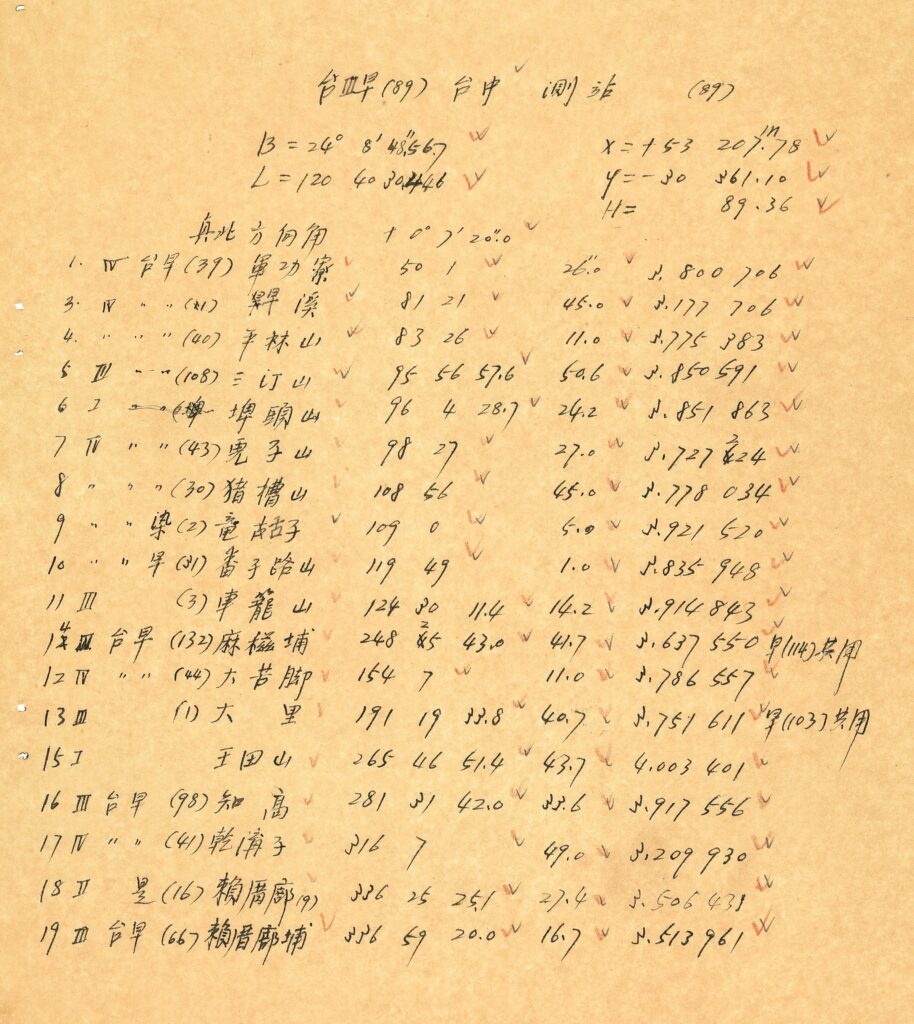 台III旱(89) 台中 測站 (89)
B = 24° 8' 48.″567 X = +53 207.ᵐ78
L = 120 40 30.446 Y = -30 361.10
H = 89.36
真北方向角 + 0° 7' 20.″0
1. IV 台旱(39) 軍功寮 50 1 26.″0 3.800 706
3. IV 〃 〃 旱溪 81 21 45.0 3.177 706
4. 〃 〃 〃 (40) 平林山 83 26 11.0 3.775 383
5 III 〃 〃 (108) 三汀山 95 56 57.6 50.6 3.850 591
6 I 埤頭山 96 4 28.7 24.2 3.851 863
7 IV 〃 〃 (43) 兎子山 98 27 27.0 3.727 224
8 〃 〃 〃 (30) 猪槽山 108 56 45.0 3.778 034
9 〃 〃 染(2) 109 0 5.0 3.921 520
10 〃 〃 旱(31) 番子路山 119 49 1.0 3.835 948
11 III (3) 車籠山 124 30 11.4 14.2 3.914 843
14 III 台旱 (132) 麻糍埔 248 25 43.0 41.7 3.637 550 旱(114)共用
12 IV 〃 〃 (44) 大苦脚 154 7 11.0 3.786 557
13 III (1) 大里 191 19 33.8 40.7 3.751 611 旱(103)共用
15 I 王田山 265 46 51.4 43.7 4.003 401
16 III 台旱 (98) 知高 281 31 42.0 33.6 3.917 556
17 IV 〃 〃 (41) 乾溝子 316 7 49.0 3.209 930
18 II 是(16) 賴厝廍(9) 336 25 25.1 27.4 3.506 431
19 III 台旱 (66) 賴厝廍埔 336 59 20.0 16.7 3.513 961